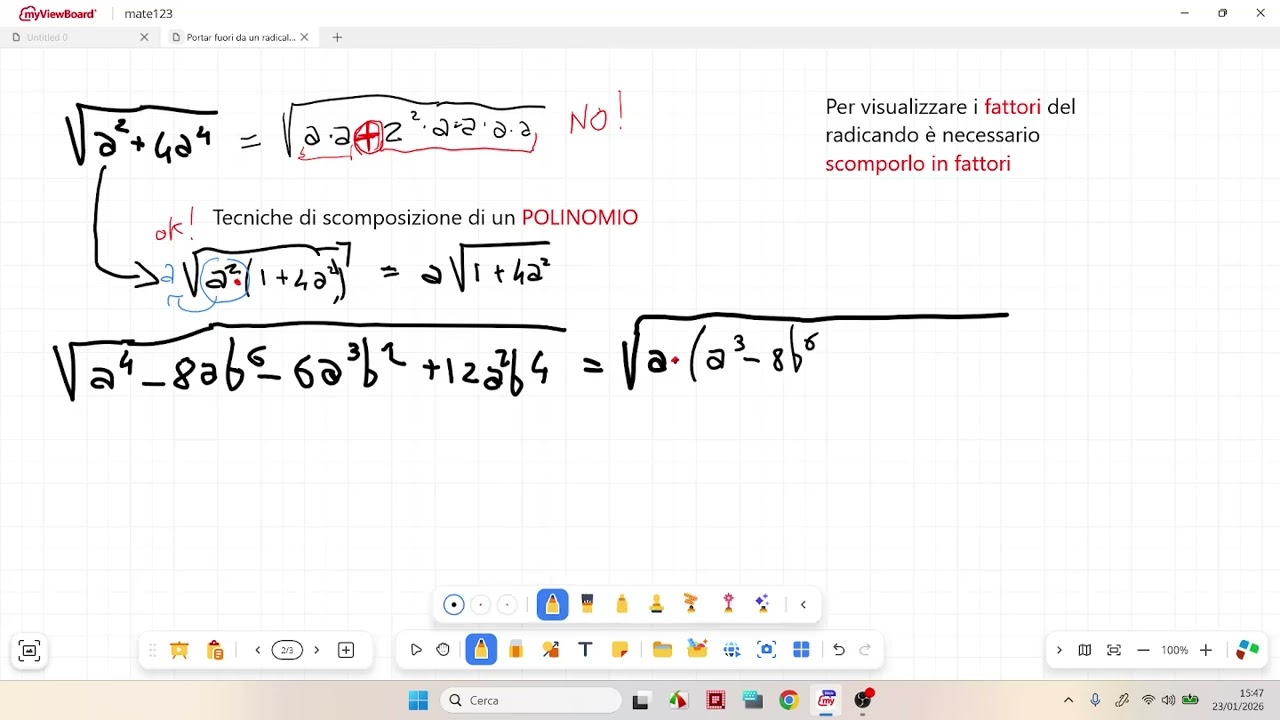 myViewBoard mate123
Untitled 0 Portar fuori da un radical...
√(a² + 4a⁴) = √(a·a + 2²·a·a·a·a) NO!
Per visualizzare i fattori del
radicando è necessario
scomporlo in fattori
ok! Tecniche di scomposizione di un POLINOMIO
a √(a²·(1 + 4a²)) = a√(1 + 4a²)
√(a⁴ − 8ab⁶ − 6a³b² + 12a²b⁴) = √(a·(a³ − 8b⁶
2/3
100%
Cerca
15:47
23/01/2026